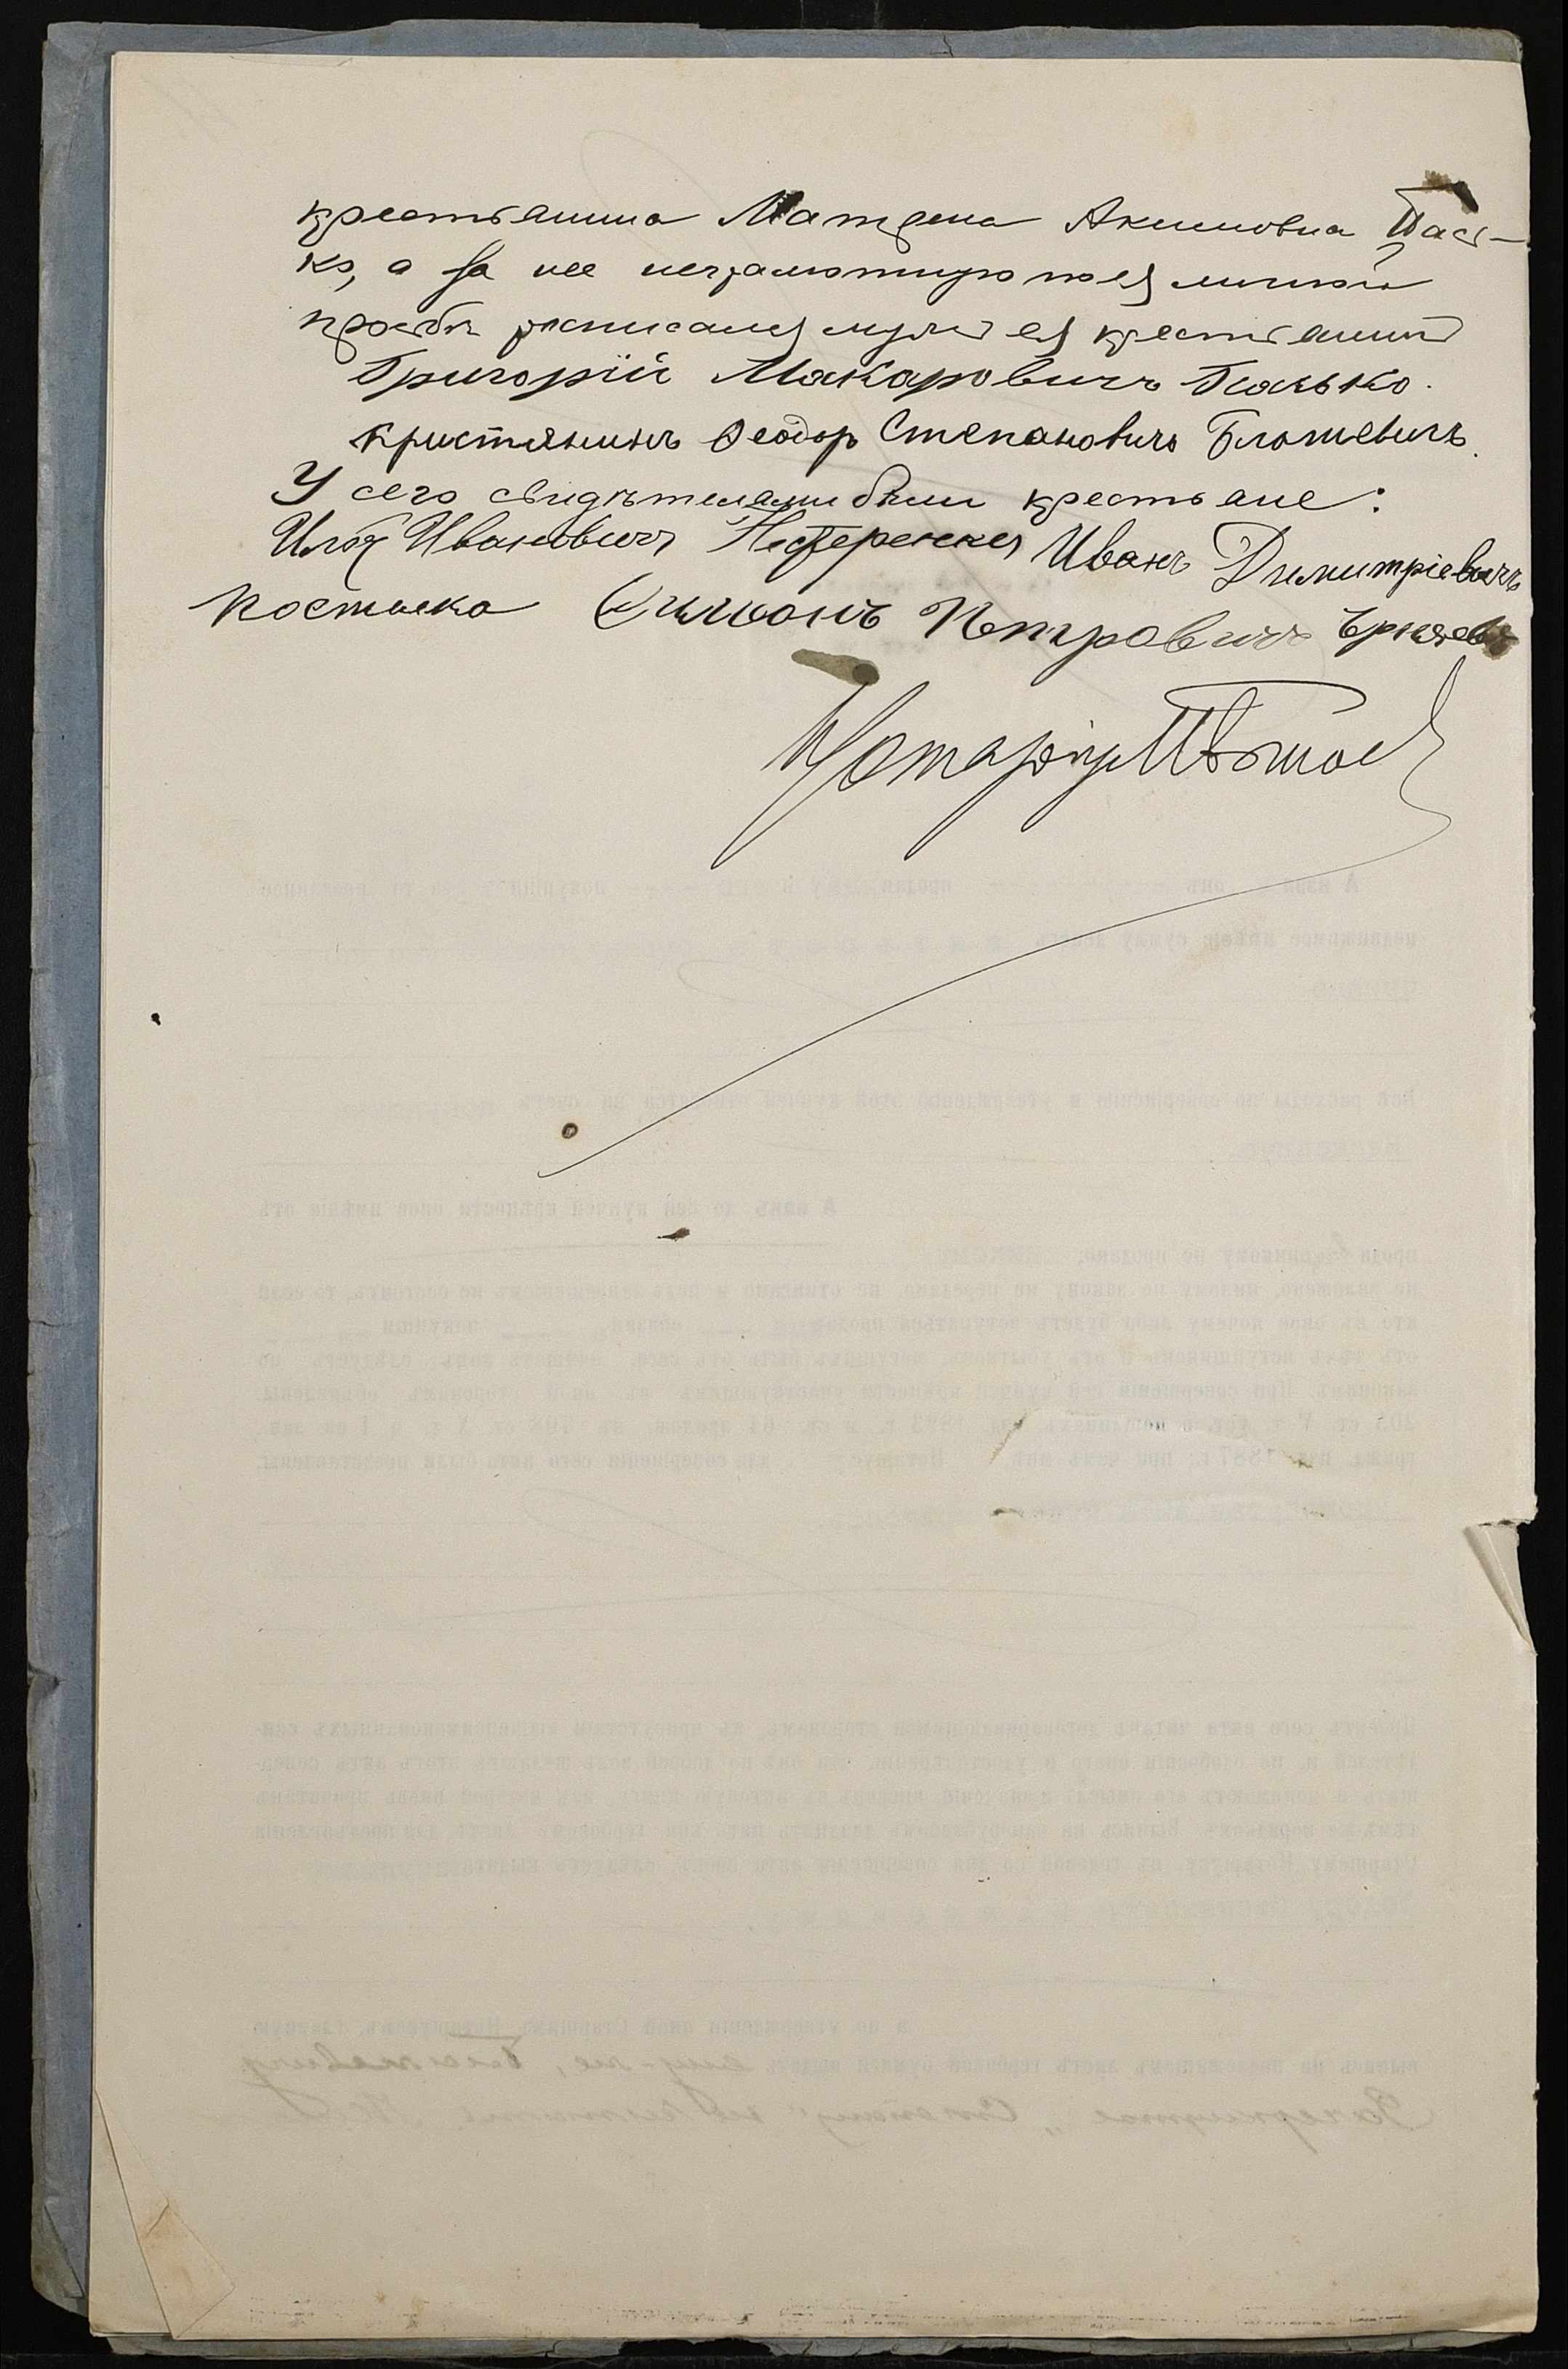 крестьянина Матрена Акимовна Пась-
ко, а за нее неграмотную по ея личной
просьбѣ росписался мужъ ея крестьянинъ
Григорій Макаровичъ Пасько.
Кристянинъ Ѳеодор Степановичъ Блажевичъ.
У сего свидѣтелями были крестьяне:
Илья Ивановичъ Нестеренко Иванъ Димитріевичъ
Костюка Симіонъ Петровичъ
Нотаріусъ